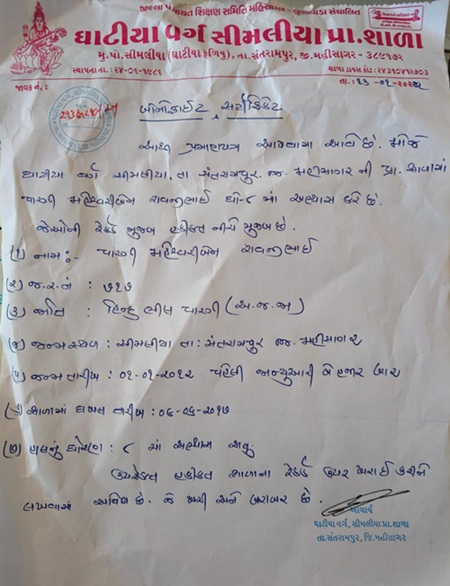 જીલ્લા પંચાયત શિક્ષણ સમિતિ મહિસાગર - લુણાવાડા સંચાલિત
ઘાટીયા વર્ગ સીમલીયા પ્રા.શાળા
મુ.પો.સીમલીયા (ઘાટીયા ફળિયુ), તા.સંતરામપુર, જી.મહીસાગર - ૩૮૯૧૭૨
સ્થાપના તા. : ૨૪-૦૬-૧૯૮૬
શાળા ડાયસ કોડ : ૨૪૩૫૦૪૧૭૦૩
જાવક નં. :
તા. ૨૩ -૦૧-
બોનોફાઈટ સર્ટીફિકેટ
આથી પ્રમાણપત્ર આપવામાં આવે છે. મોજે
ઘાટીયા વર્ગ સીમલીયા, તા સંતરામપુર. જી. મહીસાગર ની પ્રા. શાળામાં
પારગી મહેશ્વરીબેન રાવજીભાઈ ધો-૮ માં અભ્યાસ કરે છે.
જેઓની રેકર્ડ મુજબ હકીકત નીચે મુજબ છે.
(૧) નામ :- પારગી મહેશ્વરીબેન રાવજીભાઈ
(૨) જ.ર.નં : ૭૧૭
(૩) જાતિ : હિન્દુ ભીલ પારગી (અ.જ.જા)
(૪) જન્મસ્થળ : સીમલીયા તા : સંતરામપુર જી. મહીસાગર
(૫) જન્મ તારીખ : ૦૧-૦૧-૨૦૧૨ પહેલી જાન્યુઆરી બે હજાર બાર
(૬) શાળામાં દાખલ તારીખ : ૦૬-૦૬-૨૦૧૭
(૭) હાલનું ધોરણ : ૮ માં અભ્યાસ ચાલુ
ઉપરોક્ત હકીકત શાળાના રેકર્ડ ઉપર ખરાઈ કરીને
લખવામાં આવેલ છે. જે ખરી અને બરાબર છે.
આચાર્ય
ઘાટીયા વર્ગ, સીમલીયા પ્રા.શાળા
તા.સંતરામપુર, જિ.મહીસાગર